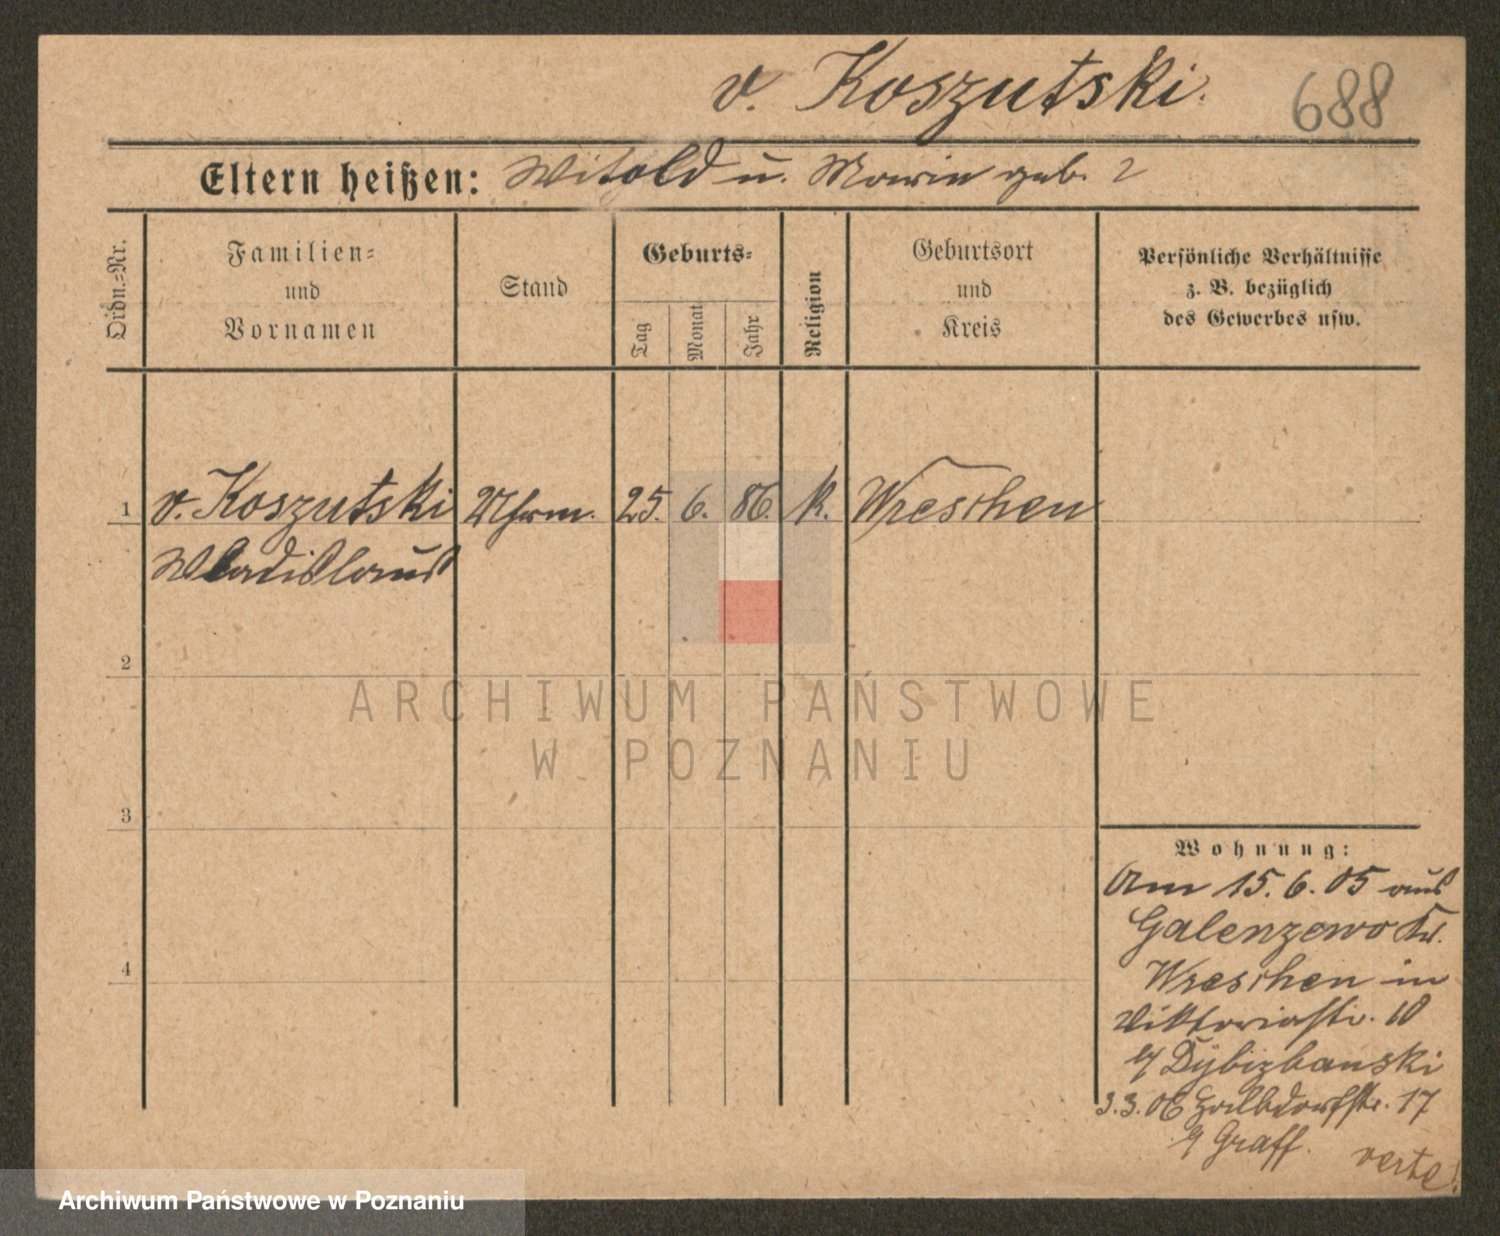 v. Koszutski.
688
Eltern heißen: Witold u. Maria geb. ?
Ordn.-Nr.
Familien-
und
Vornamen
Stand
Geburts-
Tag
Monat
Jahr
Religion
Geburtsort
und
Kreis
Persönliche Verhältnisse
z. B. bezüglich
des Gewerbes usw.
1 v. Koszutski Uhrm. 25. 6. 86. k. Wreschen
Wladislaus
2
3
4
Wohnung:
Am 15. 6. 05 aus
Galenzowo Kr.
Wreschen in
Viktoriastr. 10
b/ Dybizbanski
3.3.06 Halbdorfstr. 17
b/ Graff.
verte!
ARCHIWUM PAŃSTWOWE
W POZNANIU
Archiwum Państwowe w Poznaniu